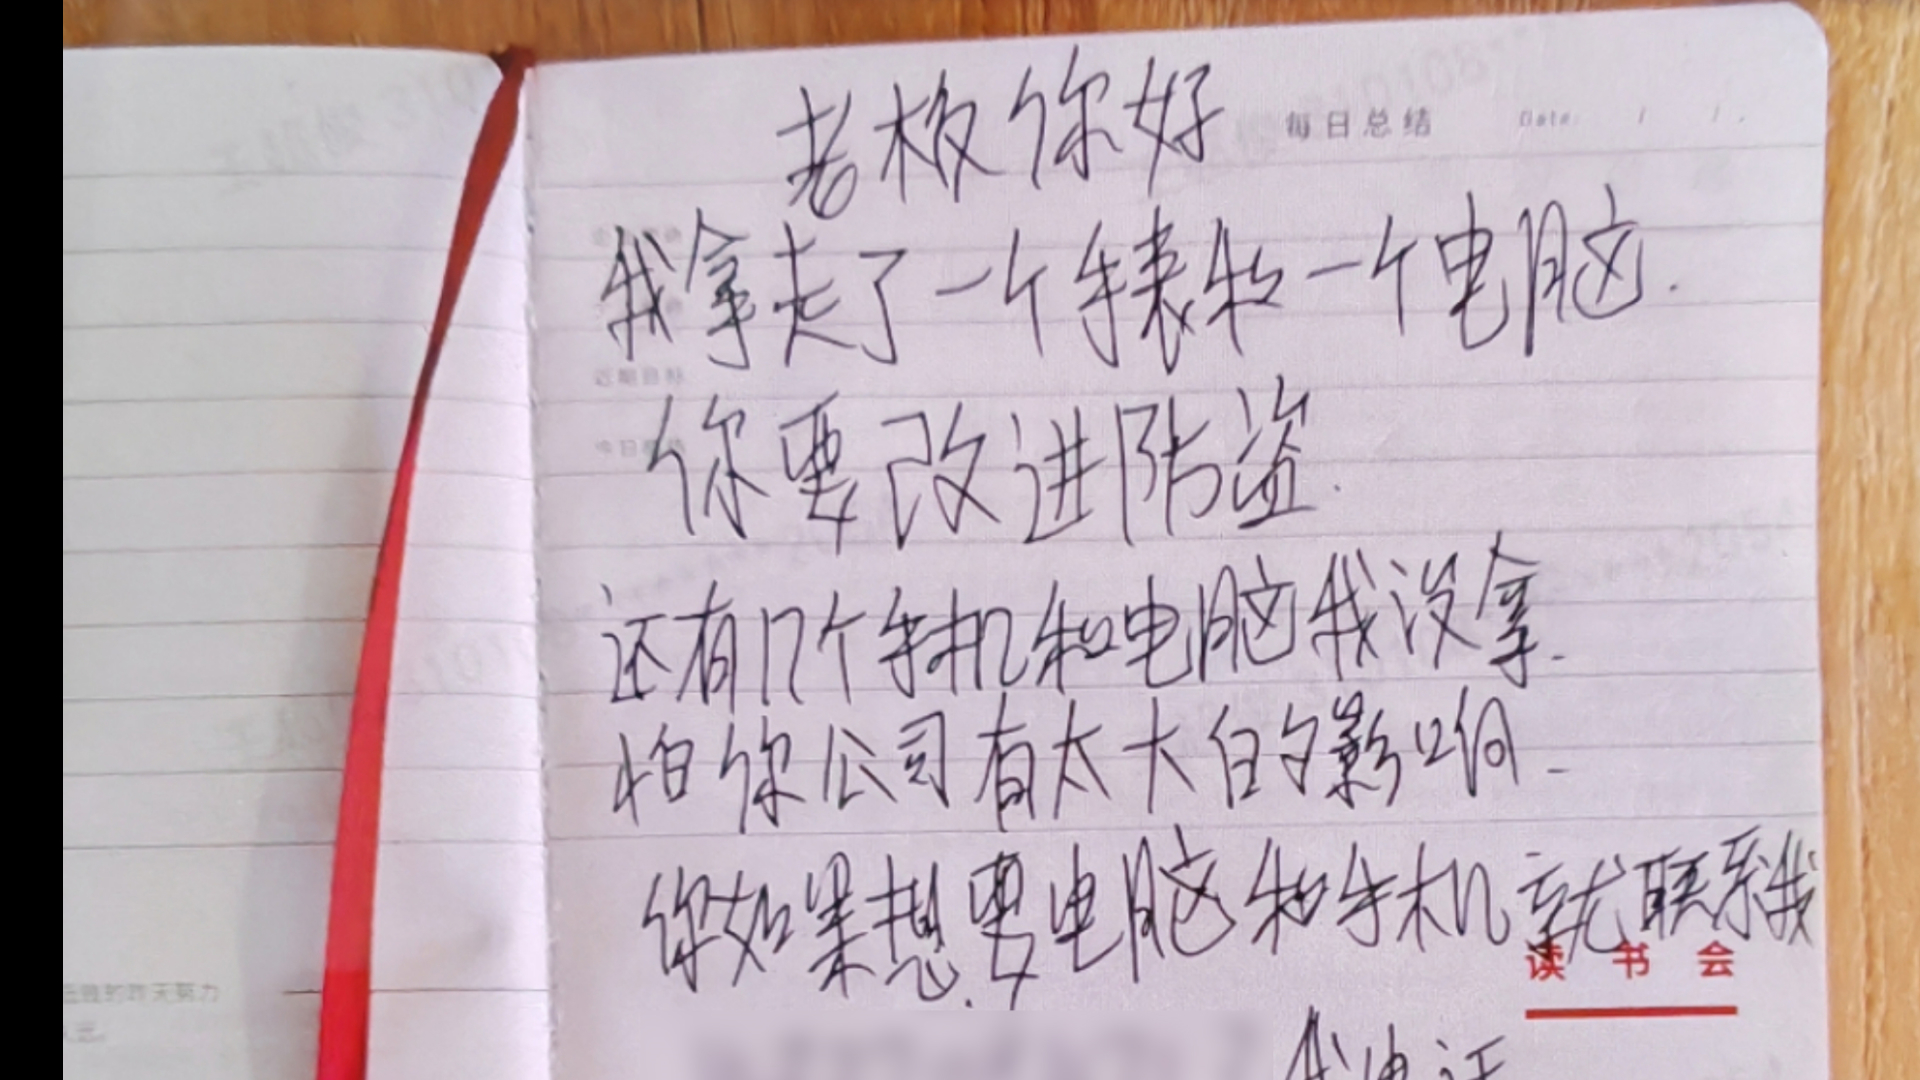 老板你好
每日总结 Date: / /
我拿走了一个手表和一个电脑.
近期目标
你要改进防盗.
还有几个手机和电脑我没拿.
怕你公司有太大的影响.
你如果想要电脑和手机就联系我
读书会
我电话